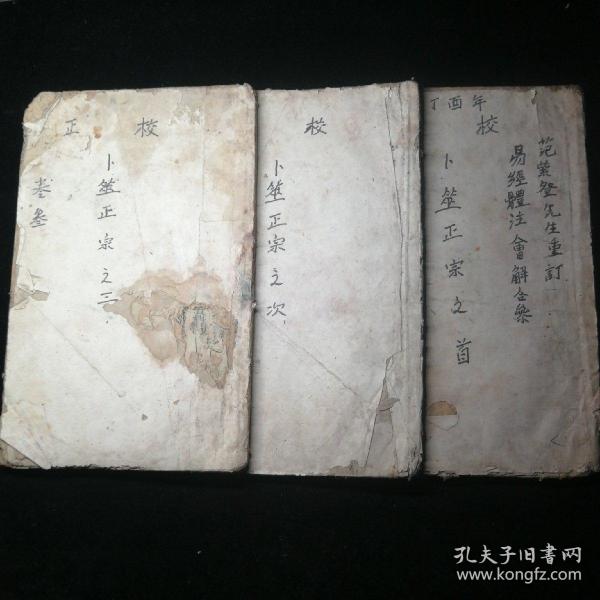 丁酉年
校
范紫登先生重訂
易經體注會解合參
卜筮正宗之首
校
卜筮正宗之次
校正
卜筮正宗之三
卷叁
孔夫子旧书网
www.kongfz.com